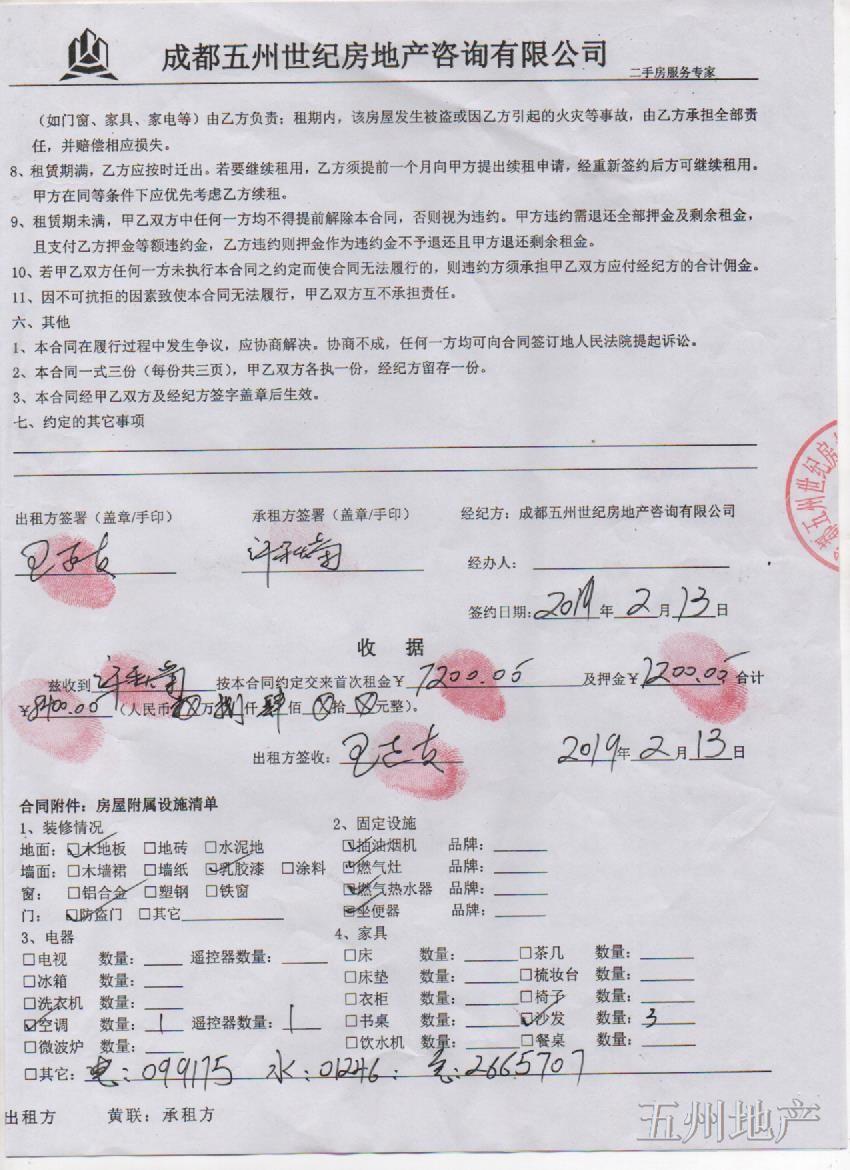 成都五州世纪房地产咨询有限公司
二手房服务专家
（如门窗、家具、家电等）由乙方负责；租期内，该房屋发生被盗或因乙方引起的火灾等事故，由乙方承担全部责
任，并赔偿相应损失。
8、租赁期满，乙方应按时迁出。若要继续租用，乙方须提前一个月向甲方提出续租申请，经重新签约后方可继续租用。
甲方在同等条件下应优先考虑乙方续租。
9、租赁期未满，甲乙双方中任何一方均不得提前解除本合同，否则视为违约。甲方违约需退还全部押金及剩余租金，
且支付乙方押金等额违约金，乙方违约则押金作为违约金不予退还且甲方退还剩余租金。
10、若甲乙双方任何一方未执行本合同之约定而使合同无法履行的，则违约方须承担甲乙双方应付经纪方的合计佣金。
11、因不可抗拒的因素致使本合同无法履行，甲乙双方互不承担责任。
六、其他
1、本合同在履行过程中发生争议，应协商解决。协商不成，任何一方均可向合同签订地人民法院提起诉讼。
2、本合同一式三份（每份共三页），甲乙双方各执一份，经纪方留存一份。
3、本合同经甲乙双方及经纪方签字盖章后生效。
七、约定的其它事项
五州世纪房
出租方签署（盖章/手印） 承租方签署（盖章/手印） 经纪方：成都五州世纪房地产咨询有限公司
经办人：
签约日期：2019年2月13日
收 据
兹收到 按本合同约定交来首次租金￥7200.00 及押金￥1200.00 合计
￥8400.00（人民币 万捌仟肆佰 拾 元整）。
出租方签收： 2019年2月13日
合同附件：房屋附属设施清单
1、装修情况 2、固定设施
地面：☑木地板 □地砖 □水泥地 ☑抽油烟机 品牌：
墙面：□木墙裙 □墙纸 ☑乳胶漆 □涂料 ☑燃气灶 品牌：
窗：□铝合金 □塑钢 □铁窗 ☑燃气热水器 品牌：
门：☑防盗门 □其它 ☑坐便器 品牌：
3、电器 4、家具
□电视 数量： 遥控器数量： □床 数量： □茶几 数量：
□冰箱 数量： □床垫 数量： □梳妆台 数量：
□洗衣机 数量： □衣柜 数量： □椅子 数量：
☑空调 数量：1 遥控器数量：1 □书桌 数量： ☑沙发 数量：3
□微波炉 数量： □饮水机 数量： □餐桌 数量：
□其它：电：099175 水：01246 气：2665707
出租方 黄联：承租方
五州地产